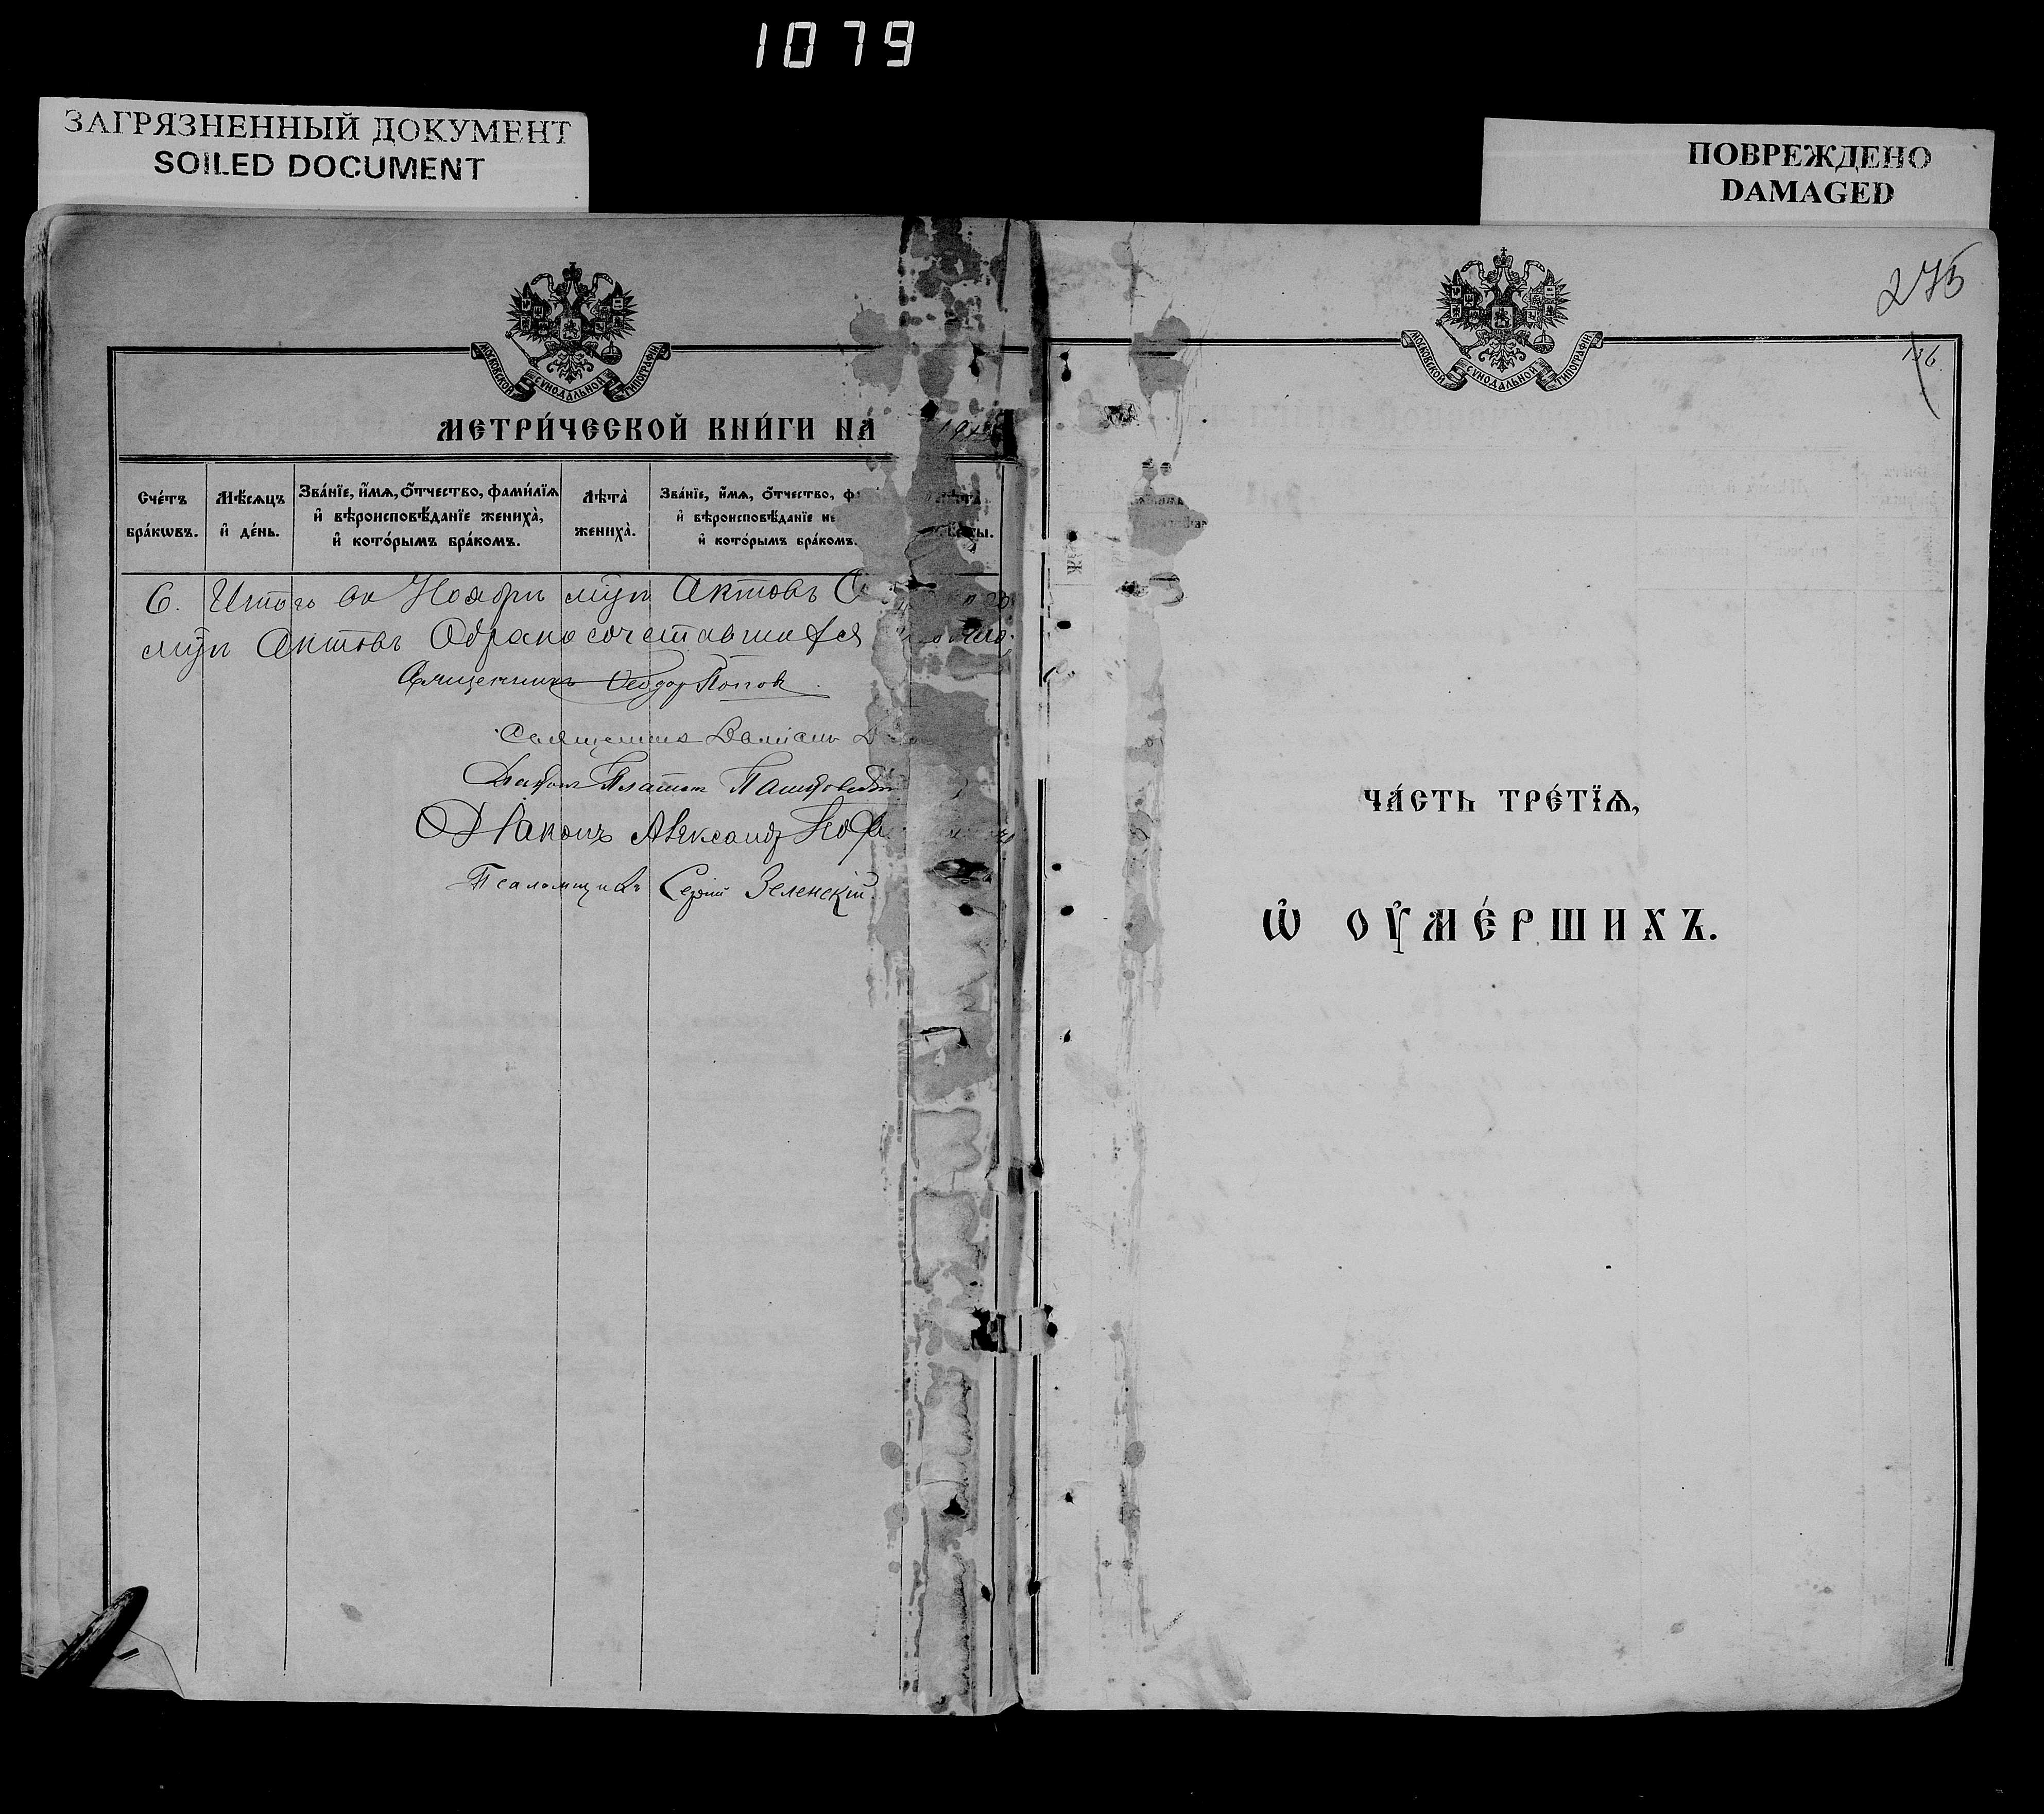 1079
ЗАГРЯЗНЕННЫЙ ДОКУМЕНТ
SOILED DOCUMENT
ПОВРЕЖДЕНО
DAMAGED
МОСКОВСКОЙ СѴНОДАЛЬНОЙ ТИПОГРАФІИ
МЕТРИ́ЧЕСКОЙ КНИ́ГИ НА́
Сче́тъ бра́кѡвъ.
Мѣ́сѧцъ и҆ де́нь.
Зва́нїе, и҆́мѧ, ѻ҆́тчество, фами́лїѧ
и҆ вѣроисповѣ́данїе жениха̀,
и҆ кото́рымъ бра́комъ.
Лѣта̀ жениха̀.
Зва́нїе, и҆́мѧ, ѻ҆́тчество,
и҆ вѣроисповѣ́данїе
и҆ кото́рымъ бра́комъ.
6. Итого въ Ноябрѣ м҃цѣ актовъ
м҃цѣ актовъ о бракосочетавшихся
Священникъ Ѳеодор Попов
Священникъ Даміанъ
Діаконъ Платонъ
Діаконъ Александр
Псаломщикъ Сергій Зеленскій.
МОСКОВСКОЙ СѴНОДАЛЬНОЙ ТИПОГРАФІИ
275
ЧА́СТЬ ТРЕ́ТЇѦ,
Ѡ҆ ОУ҆МЕ́РШИХЪ.